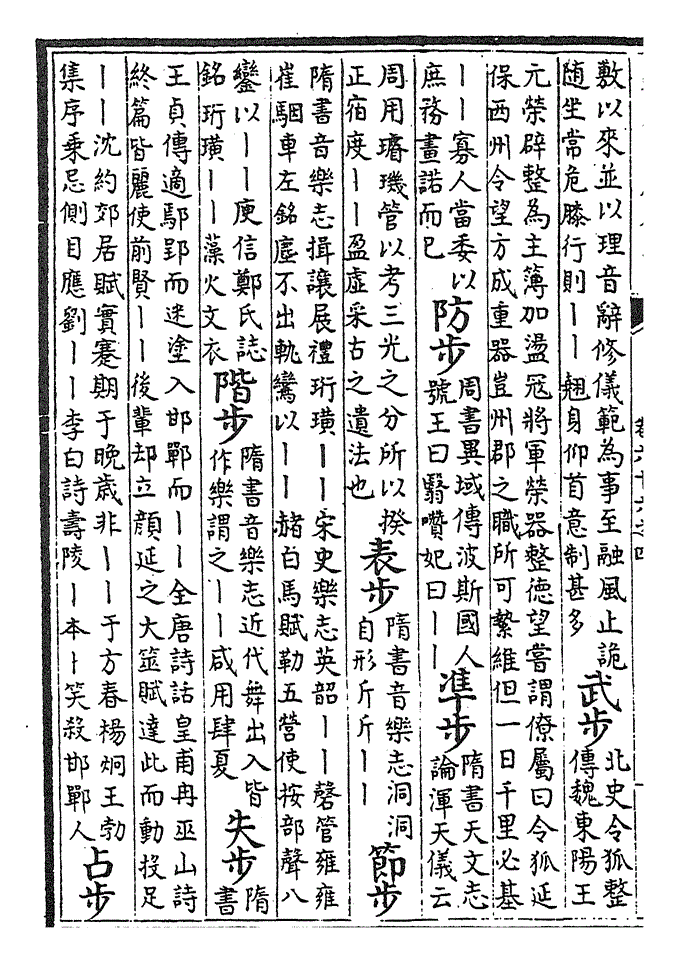 敷以來並以理音辭修儀範為事至融風止詭
随坐常危膝行則丨丨翹身仰首意制甚多
武步
北史令狐整
傳魏東陽王
元榮辟整為主薄加盪冦將軍榮器整德望嘗謂僚屬曰令狐延
保西州令望方成重器豈州郡之職所可縶維但一日千里必基
丨丨寡人當委以
庶務畫諾而已
防步
周書異域傳波斯國人
號王曰翳囋妃曰丨丨
準步
隋書天文志
論渾天儀云
周用璿璣管以考三光之分所以揆
正宿度丨丨盈虛采古之遺法也
表步
隋書音樂志洞洞
自形斤斤丨丨
節步
隋書音樂志揖讓展禮珩璜丨丨宋史樂志英韶丨丨磬管雍雍
崔駰車左銘塵不出軌鸞以丨丨赭白馬賦勒五營使按部聲八
鑾以丨丨庾信鄭氏誌
銘珩璜丨丨藻火文衣
階步
隋書音樂志近代舞出入皆
作樂謂之丨丨咸用肆夏
失步
隋
書
王貞傳適鄢郢而迷塗入邯鄲而丨丨全唐詩話皇甫冉巫山詩
終篇皆麗使前賢丨丨後輩却立顔延之大筮賦達此而動投足
丨丨沈約郊居賦實蹇期于晚歳非丨丨于方春楊炯王勃
集序乗忌側目應劉丨丨李白詩壽陵丨本丨笑殺邯鄲人
占步